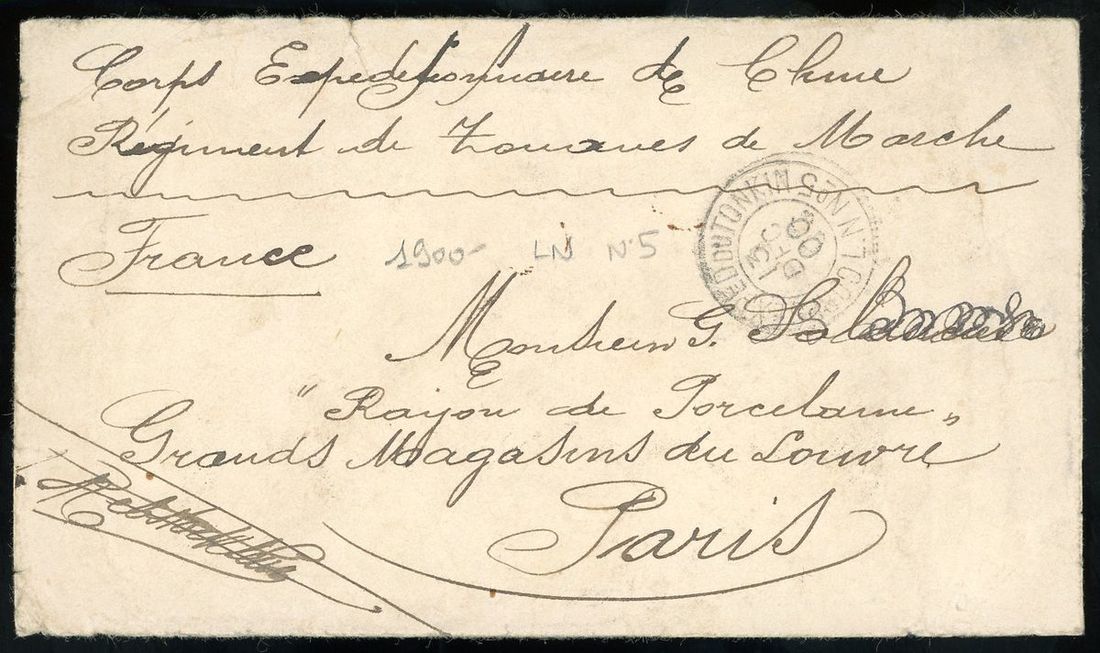 Corps Expeditionnaire de Chine
Régiment de Zouaves de Marche
France
1900- LN N°5
DU TONKIN
LN N°5
13 DEC 00
Monsieur G.
"Rayon de Porcelaine"
Grands Magasins du Louvre
Paris